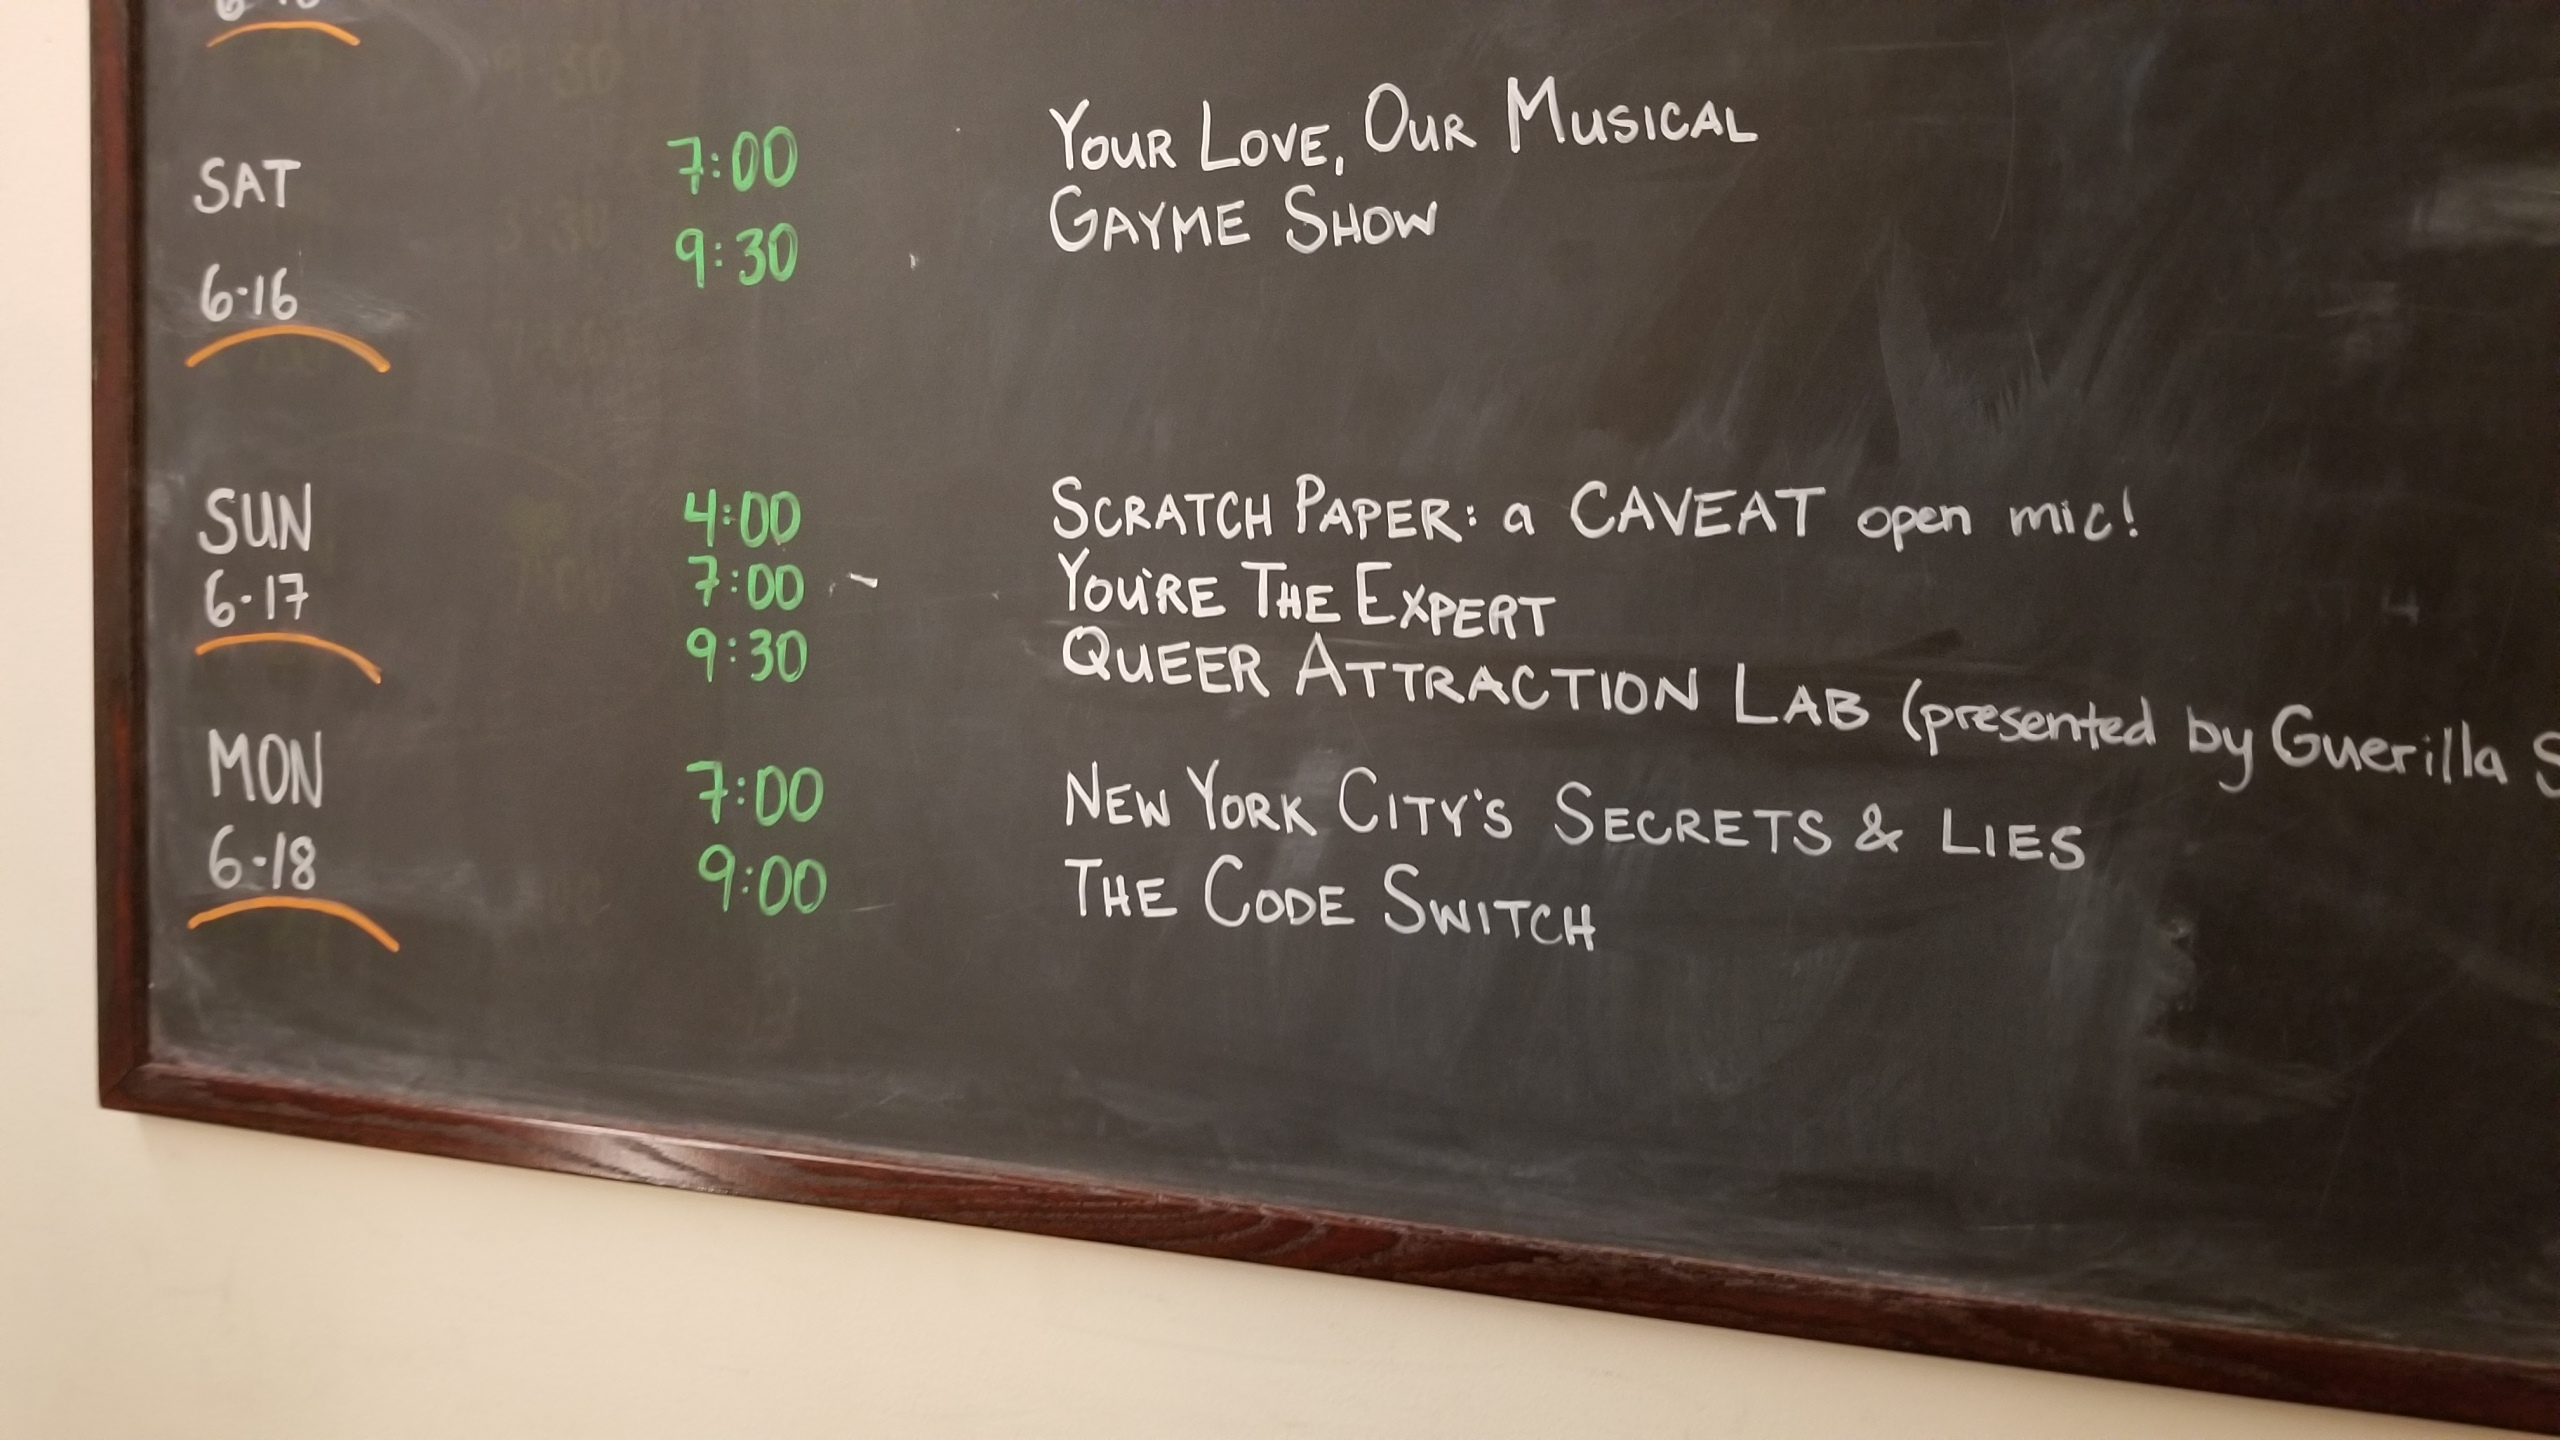 SAT 7:00 YOUR LOVE, OUR MUSICAL
9:30 GAYME SHOW
6·16
SUN 4:00 SCRATCH PAPER: a CAVEAT open mic!
6-17 7:00 YOU'RE THE EXPERT
9:30 QUEER ATTRACTION LAB (presented by Guerilla S
MON 7:00 NEW YORK CITY'S SECRETS & LIES
6-18 9:00 THE CODE SWITCH